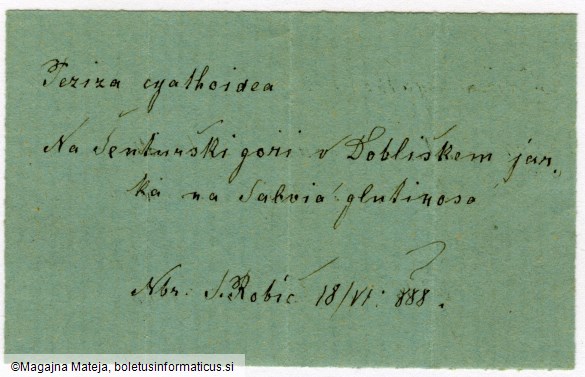 Peziza cyathoidea
Na Šenturški gori v Dobliškem jar-
ka na Salvia glutinosa
Nbr. S. Robič 18/VI. 888.
©Magajna Mateja, boletusinformaticus.si